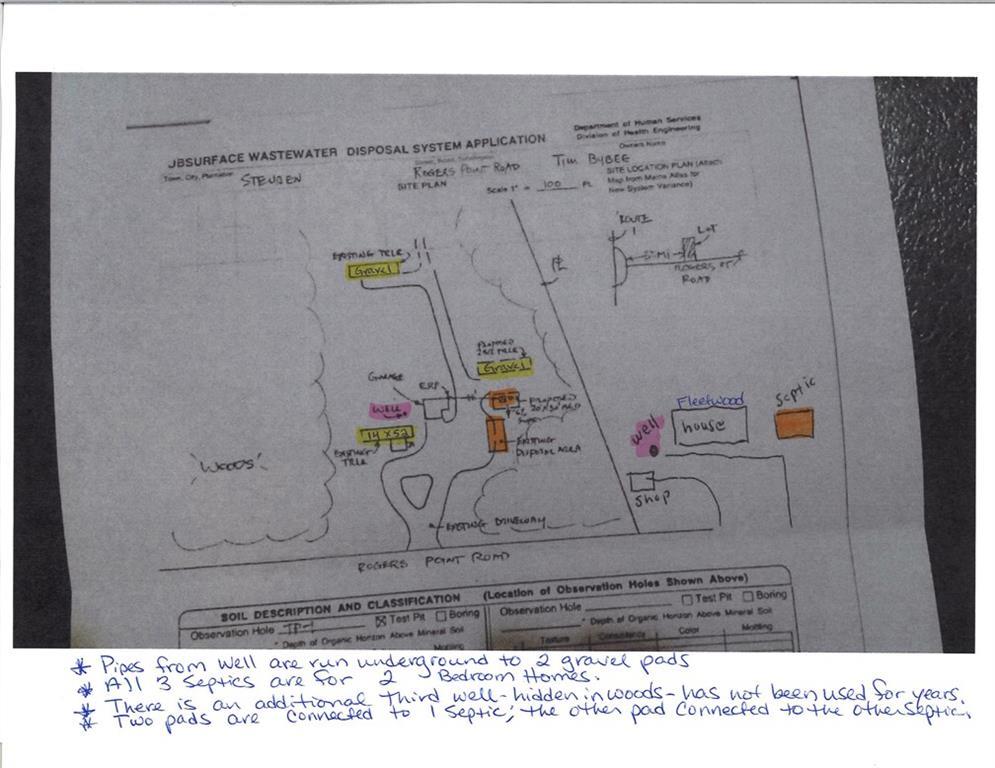 JBSURFACE WASTEWATER DISPOSAL SYSTEM APPLICATION
Department of Human Services
Division of Health Engineering
Town, City, Plantation
STEUBEN
ROGERS POINT ROAD
Owners Name
TIM BYBEE
SITE PLAN
Scale 1" = 100 Ft.
SITE LOCATION PLAN (Attach
Map from Maine Atlas for
New System Variance)
ROUTE
1
LOT
ROGERS PT.
ROAD
EXISTING TRLR
Gravel
PROPOSED
TRLR
Gravel
GARAGE
ERP
WELL
14 X 52
EXISTING
TRLR
PROPOSED
EXISTING
DISPOSAL AREA
'WOODS'
EXISTING DRIVEWAY
ROGERS POINT ROAD
Fleetwood
house
well
Septic
Shop
SOIL DESCRIPTION AND CLASSIFICATION (Location of Observation Holes Shown Above)
Observation Hole TP-1 Test Pit Boring
" Depth of Organic Horizon Above Mineral Soil
Observation Hole Test Pit Boring
" Depth of Organic Horizon Above Mineral Soil
Texture Consistency Color Mottling
* Pipes from well are run underground to 2 gravel pads
* All 3 septics are for 2 Bedroom Homes.
* There is an additional Third well-hidden in woods-has not been used for years.
* Two pads are connected to 1 septic; the other pad connected to the other septic.